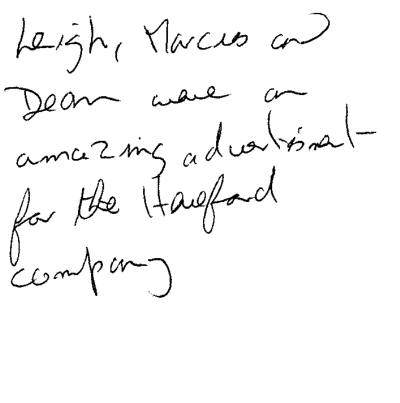 Leigh, Marcus and
Dean were an
amazing advertisment
for the Hereford
company